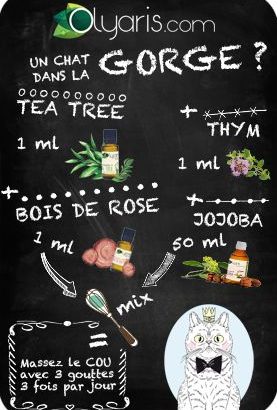 Olyaris.com
UN CHAT
DANS LA
GORGE ?
TEA TREE
1 ml
+
THYM
1 ml
+
BOIS DE ROSE
1 ml
+
JOJOBA
50 ml
mix
=
Massez le COU
avec 3 gouttes
3 fois par jour